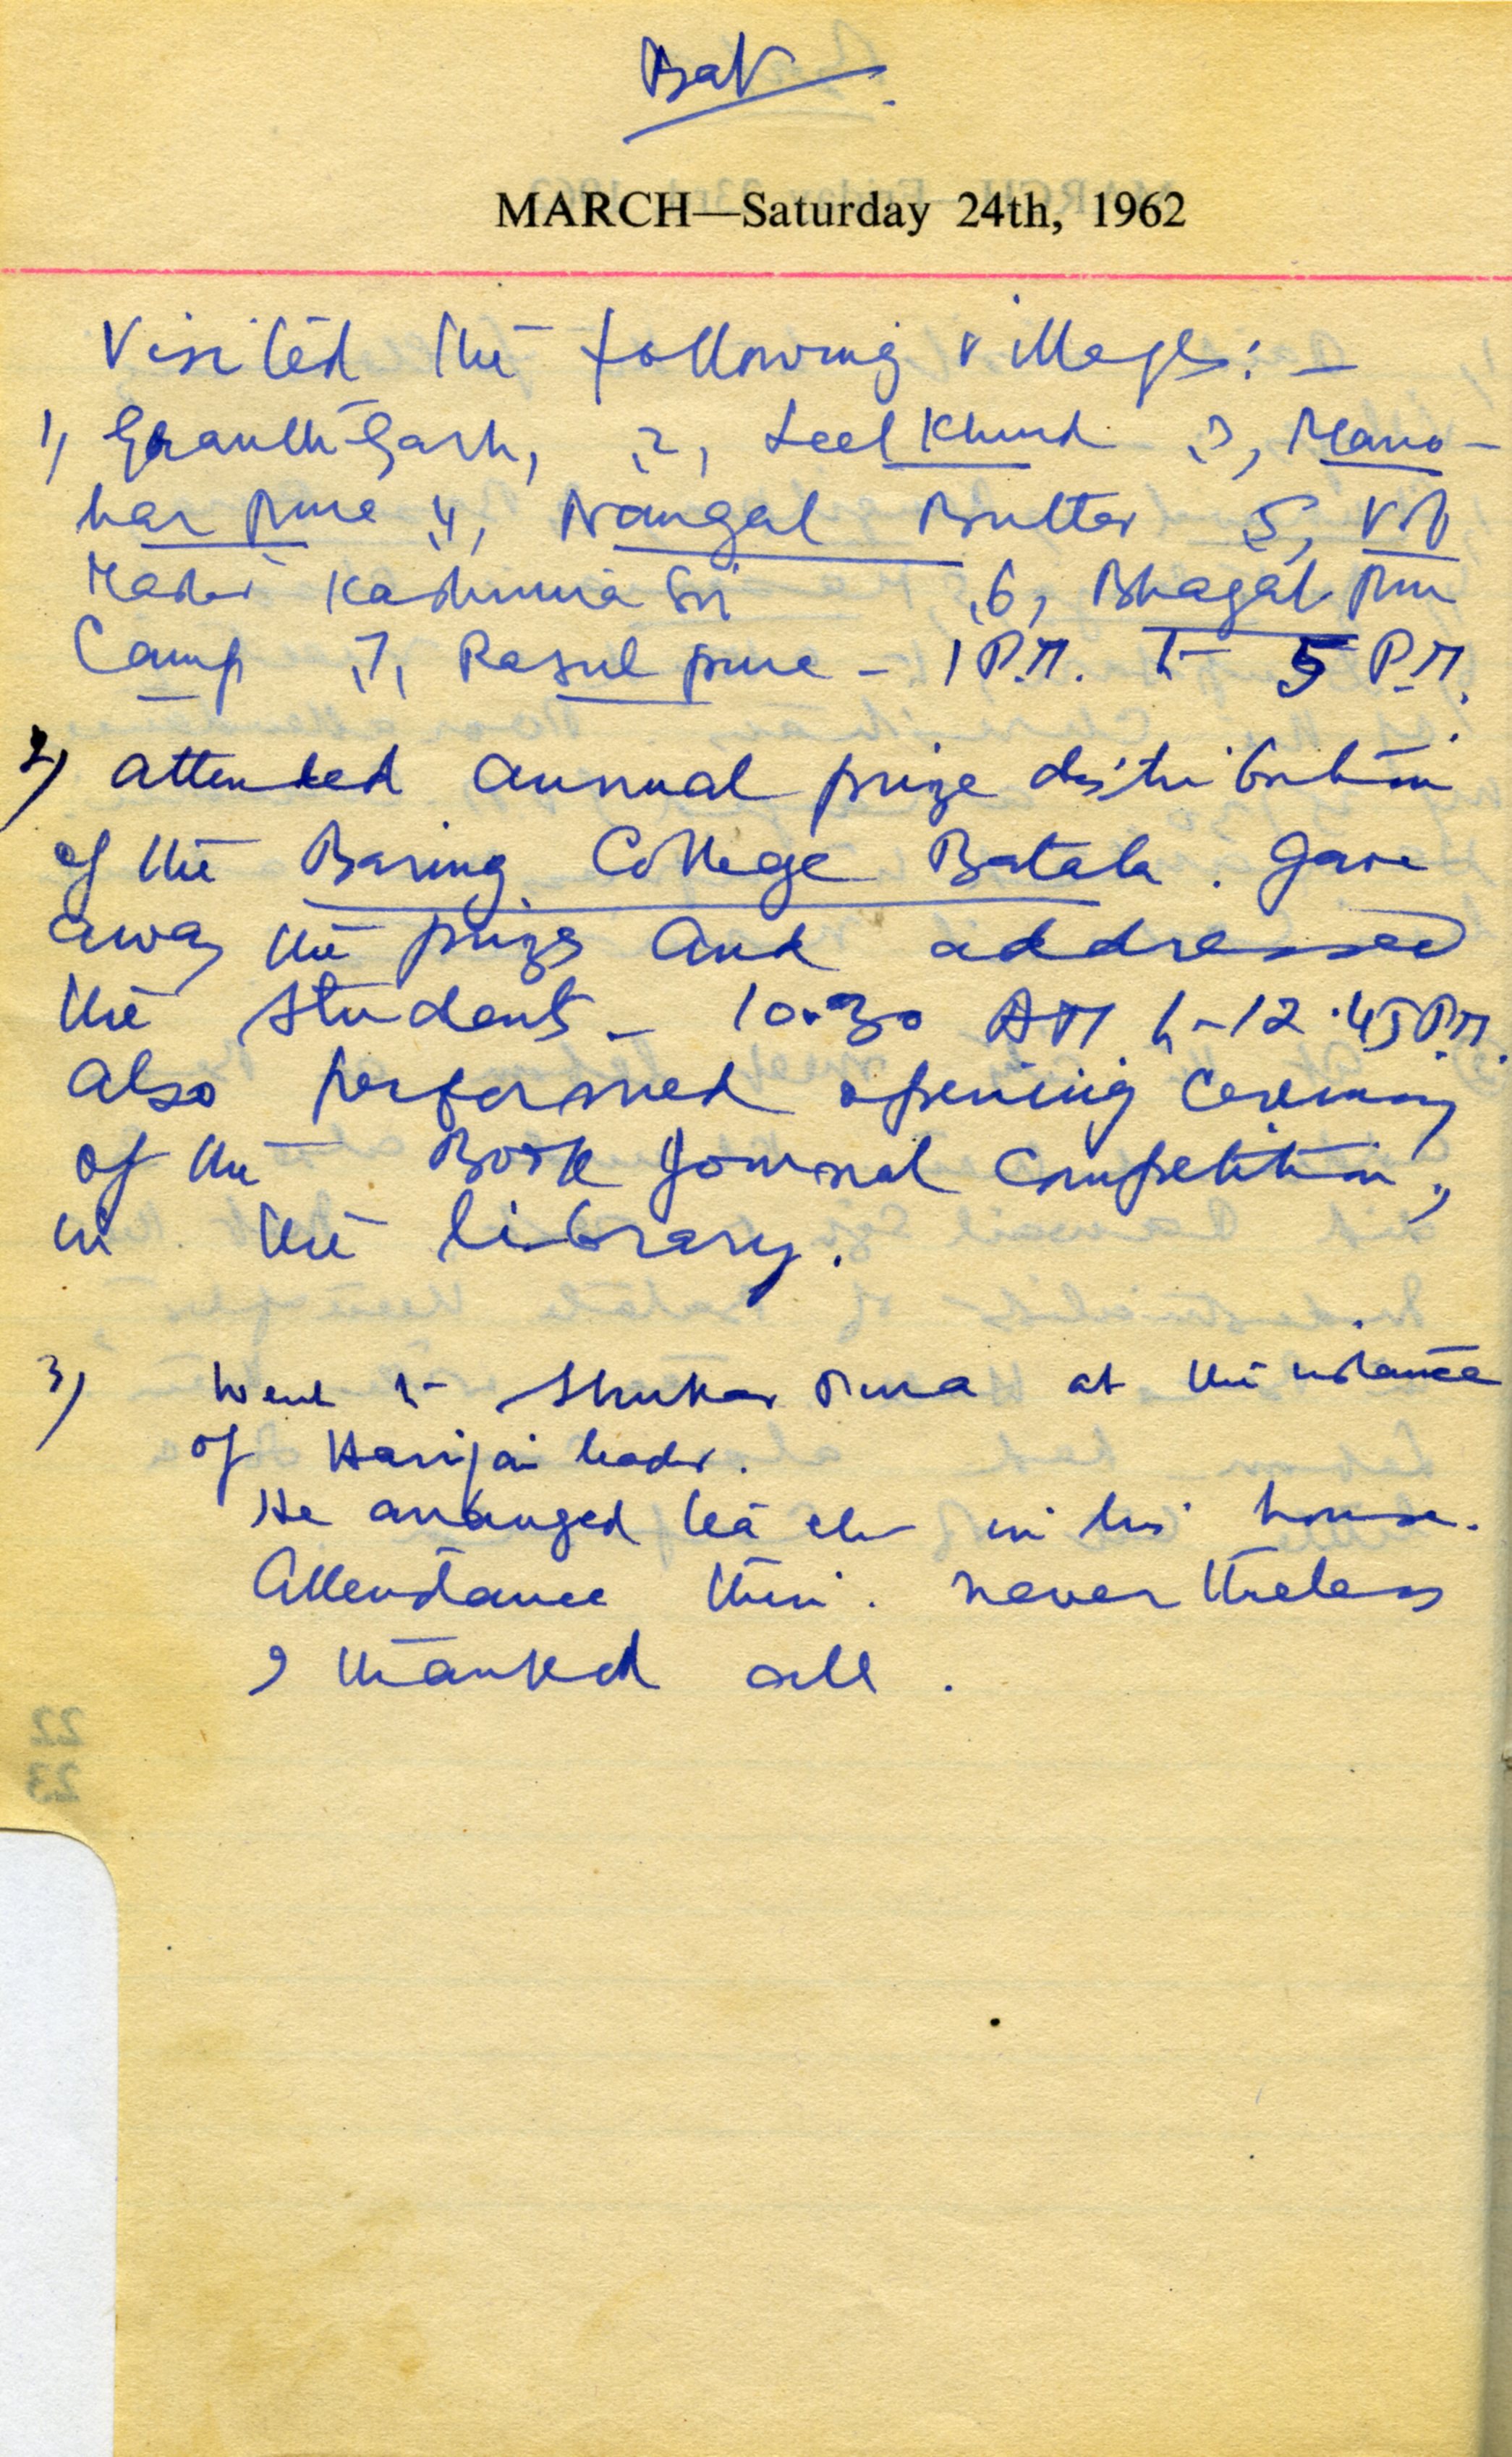 Bat
MARCH—Saturday 24th, 1962
Visited the following villages: —
1, Granthi Garh, 2, Leel Khurd 3, Mano-
har pura 4, Nangal Butter 5,
Kashmira Sri 6, Bhagat pur
Camp 7, Rasul pura - 1 P.M. to 5 P.M.
2) attended annual prize distribution
of the Baring College Batala. Gave
away the prizes and addressed
the students - 10.30 AM to 12.45 P.M.
also performed opening ceremony
of the Book Journal Competition,
in the library.
3) Went to Shukar Pura at the instance
of Harijan leader.
He arranged tea etc in his house.
Attendance thin. nevertheless
I thanked all.
22
23